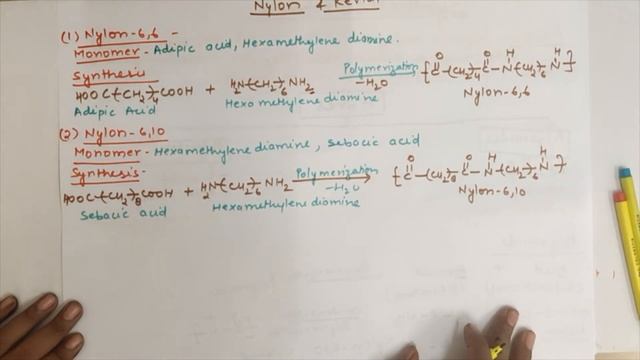 Nylon & Kevlar
(1) Nylon-6,6 -
Monomer - Adipic acid, Hexamethylene diamine.
Synthesis
HOOC-(CH2)4-COOH + H2N-(CH2)6-NH2 Polymerization -H2O {C(=O)-(CH2)4-C(=O)-N(H)-(CH2)6-N(H)}
Adipic Acid Hexamethylene diamine Nylon-6,6
(2) Nylon-6,10
Monomer - Hexamethylene diamine, Sebacic acid
Synthesis -
HOOC-(CH2)8-COOH + H2N-(CH2)6-NH2 Polymerization -H2O {C(=O)-(CH2)8-C(=O)-N(H)-(CH2)6-N(H)}
Sebacic acid Hexamethylene diamine Nylon-6,10